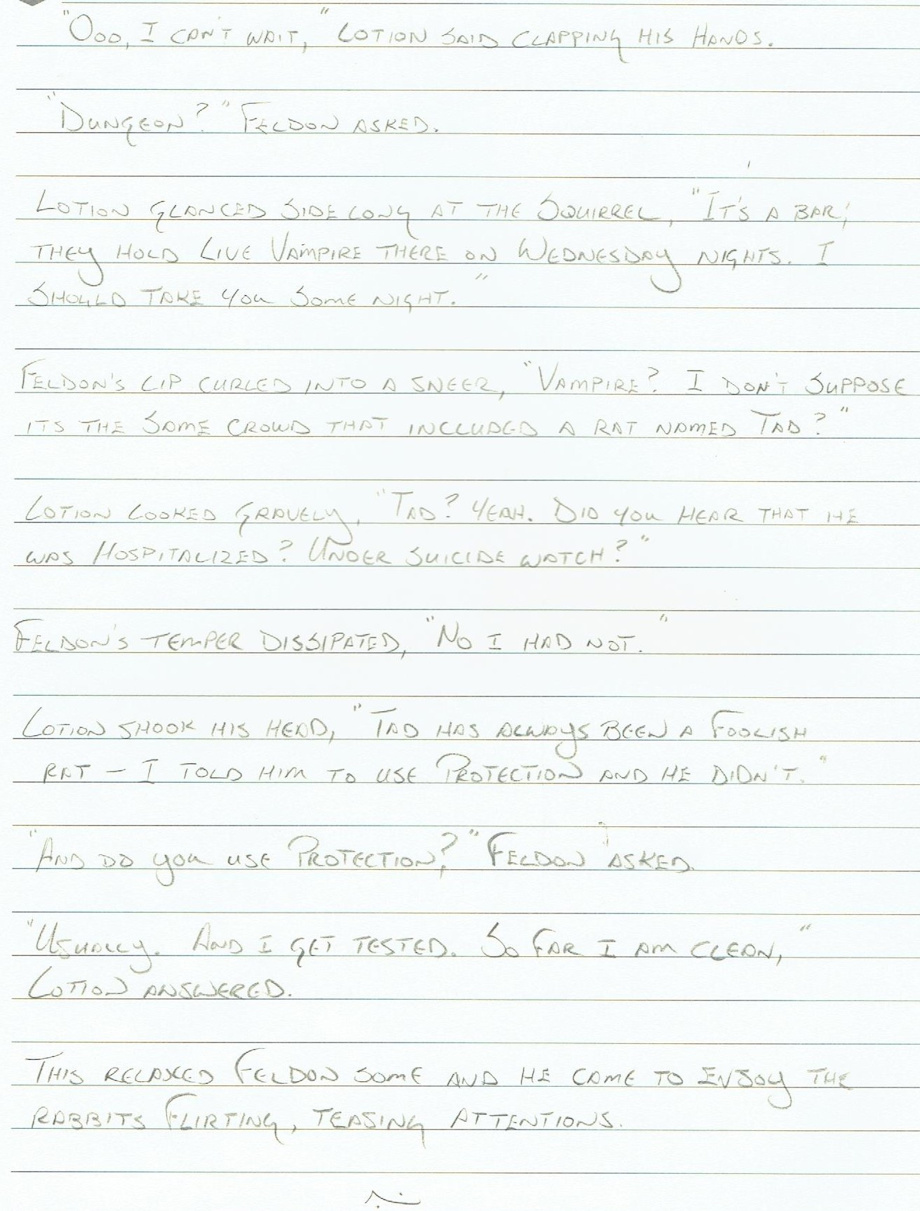 "Ooo, I can't wait," Lotion said clapping his hands.
"Dungeon?" Feldon asked.
Lotion glanced sidelong at the squirrel, "It's a bar,
they hold Live Vampire there on Wednesday nights. I
should take you some night."
Feldon's lip curled into a sneer, "Vampire? I don't suppose
its the same crowd that included a rat named Tad?"
Lotion looked gravely, "Tad? Yeah. Did you hear that he
was hospitalized? Under suicide watch?"
Feldon's temper dissipated, "No I had not."
Lotion shook his head, "Tad has always been a foolish
rat — I told him to use protection and he didn't."
"And do you use protection?" Feldon asked.
"Usually. And I get tested. So far I am clean,"
Lotion answered.
This relaxed Feldon some and he came to enjoy the
rabbits flirting, teasing attentions.